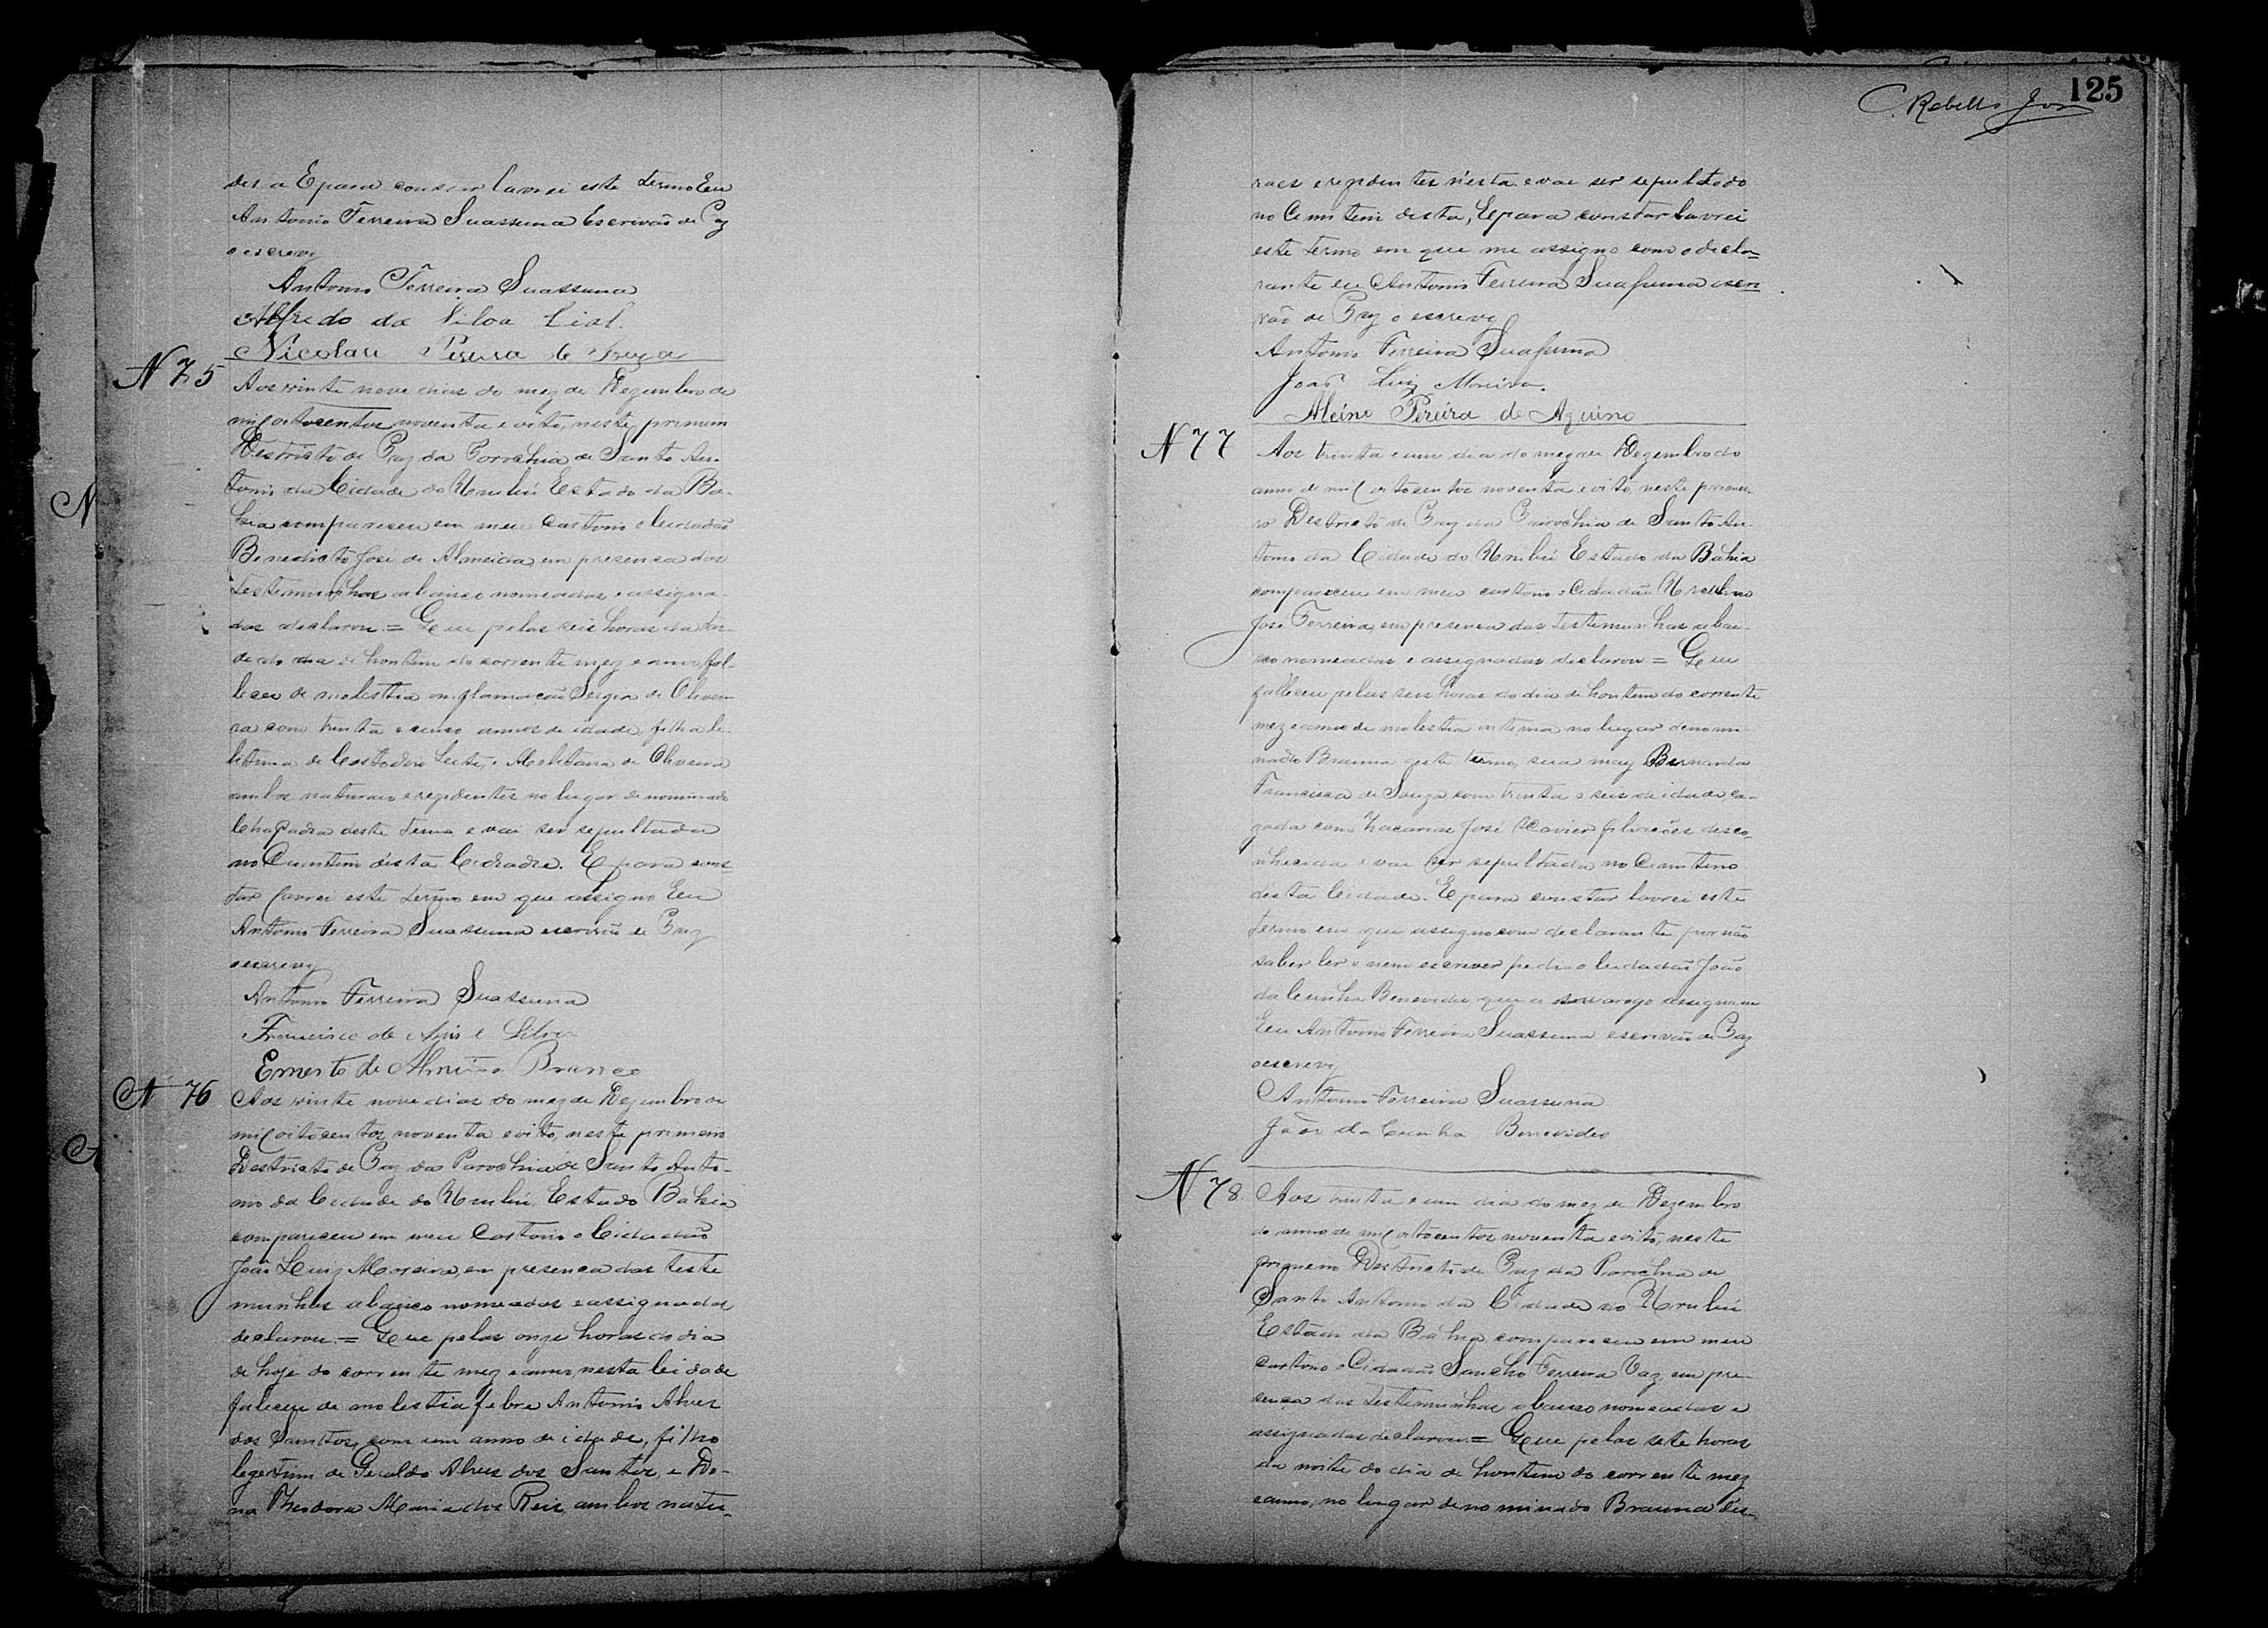 des a E para constar lavrei este termo Eu
Antonio Ferreira Suassuna Escrivão de Paz
o escrevy
Antonio Ferreira Suassuna
Alfredo da Silva Lial.
Nicolau Pereira de
N 75
Aos vinte nove dias do mez de Dezembro de
mil oitocentos noventa e oito, neste primeiro
Destricto de Paz da Parochia de Santo An-
tonio da Cidade do Urubú Estado da Ba-
hia compareceu em meu Cartorio o Cidadão
Benedicto José de Almeida em presença das
testemunhas abaixo nomeadas e assigna-
das declarou = Que pelas seis horas da tar-
de do dia de hontem do corrente mez e anno, fal-
leceu de molestia inflamação Sergia de Olivei-
ra com trinta e cinco annos de idade, filha le-
litima de Custodio Leite, e de Oliveira
ambos naturais e rezidentes no lugar denominado
deste termo e vai ser sepultada
no Cemiterio désta Cidade. E para cons-
tar lavrei este termo em que assigno Eu
Antonio Ferreira Suassuna escrivão de Paz
o escrevy
Antonio Ferreira Suassuna
Francisco de Silva
Ernesto de Almeida Branco
N 76
Aos vinte nove dias do mez de Dezembro de
mil oitocentos noventa e oito, neste primeiro
Destricto de Paz da Parochia de Santo Anto-
nio da Cidade do Urubú Estado Bahia
compareceu em meu Cartorio o Cidadão
João Luiz Moreira, em presença das teste
munhas abaixo nomeadas e assignadas
declarou. = Que pelas onze horas do dia
de hoje do corrente mez e anno, nesta Cidade
faleceu de molestia febre Antonio Alves
dos Santos, com um anno de idade, filho
legertimo de Geraldo Alves dos Santos, e Do-
na Theodora Maria dos Reis, ambos natu-
125
C. Rebello Jor
raes e rezidentes n'esta e vae ser sepultado
no Cemiterio desta, E para constar lavrei
este termo em que me assigno com o decla-
rante eu Antonio Ferreira Suassuna escri
vão de Paz o escrevy
Antonio Ferreira Suassuna
João Luiz Moreira.
Alcino Pereira de Aquino
N 77
Aos trinta e um dia do mez de Dezembro do
anno de mil oitocentos noventa e oito, neste primei-
ro Destricto de Paz da Parochia de Santo An-
tonio da Cidade do Urubú Estado da Bahia
compareceu em meu cartorio o Cidadão
José Ferreira, em presença das testemunhas abai-
xo nomeadas e assignadas declarou = Que
falleceu pelas seis horas do dia de hontem do corrente
mez e anno de molestia interna no lugar denomi
nado Brauna deste termo, sua may Bernarda
Francisca de Souza com trinta e seis de idade, ca-
zada com Zacarias José Xavier filiações desco-
nhecida e vae ser sepultada no Cemiterio
désta Cidade. E para constar lavrei este
termo em que assigno com declarante por não
saber ler e nem escrever pedio o Cidadão João
da Cunha Benevides que a seu arogo assignasse
Eu Antonio Ferreira Suassuna escrivão de Paz
o escrevy
Antonio Ferreira Suassuna
João da Cunha Benevides
N 78.
Aos trinta e um dia do mez de Dezembro
do anno de mil oitocentos noventa e oito, neste
primeiro Destricto de Paz da Parochia de
Santo Antonio da Cidade do Urubú
Estado da Bahia, compareceu em meu
cartorio o Cidadão Sancho Ferreira Vaz, em pre-
sença das testemunhas abaixo nomeadas e
assignadas declarou = Que pelas sete horas
da noite do dia de hontem do corrente mez
e anno, no lugar denominado Brauna des-